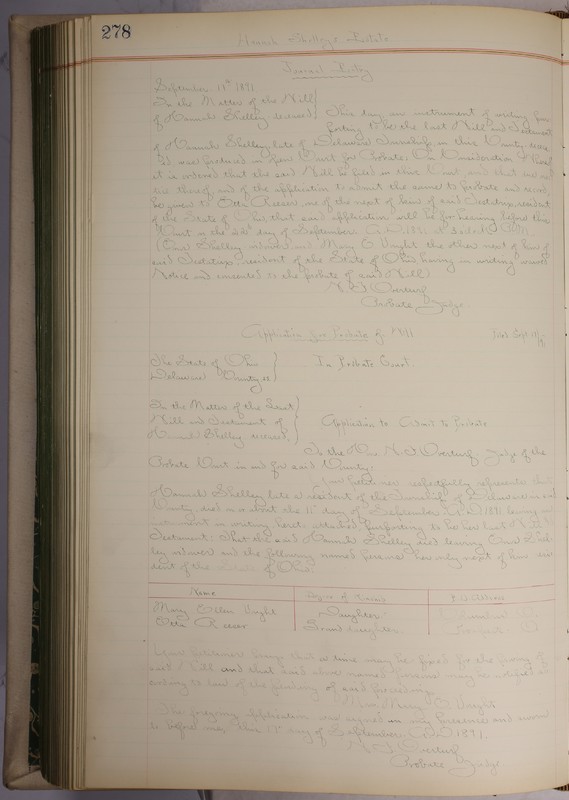 278
Hannah Shelley's Estate
Journal Entry
September 15th 1891
In the Matter of the Will
of Hannah Shelley deceased
This day an instrument of writing pur-
porting to be the last Will and Testament
of Hannah Shelley late of Delaware Township in this County, deceas-
ed, was produced in open Court for Probate. On Consideration whereof
it is ordered that the said Will be filed in this Court, and that no-
tice thereof, and of the application to admit the same to probate and record,
be given to Etta Reeser, one of the next of kin of said Testatrix, resident
of the State of Ohio, that said application will be for hearing before this
Court on the day of September A.D. 1891 at
Shelley widower and Mary E Vaught the other next of kin of
said Testatrix resident of the State of Ohio, having in writing waived
Notice and consented to the probate of said Will)
N. F. Overturf
Probate Judge.
Application for Probate of Will
Filed Sept
The State of Ohio
Delaware County ss
In Probate Court.
In the Matter of the Last
Will and Testament of
Hannah Shelley deceased.
Application to Admit to Probate
To the Hon. N. F. Overturf, Judge of the
Probate Court in and for said County:
Your petitioner respectfully represents that
Hannah Shelley late a resident of the Township of Delaware in said
County, died on or about the 11th day of September A.D. 1891 leaving an
instrument in writing, hereto attached, purporting to be her last Will &
Testament: That the said Hannah Shelley died leaving Shel-
ley widower and the following named persons her only next of kin resi-
dent of the State of Ohio.
Name Degree of Kindred P.O. Address
Mary Ellen Vaught Daughter O
Etta Reeser Granddaughter Prospect O
Your petitioner prays that a time may be fixed for the proving of
said Will and that said above named persons may be notified ac-
cording to law of the pendency of said proceeding.
Mary E Vaught
The foregoing Application was signed in my presence and sworn
to before me, this day of September A.D. 1891.
N. F. Overturf
Probate Judge